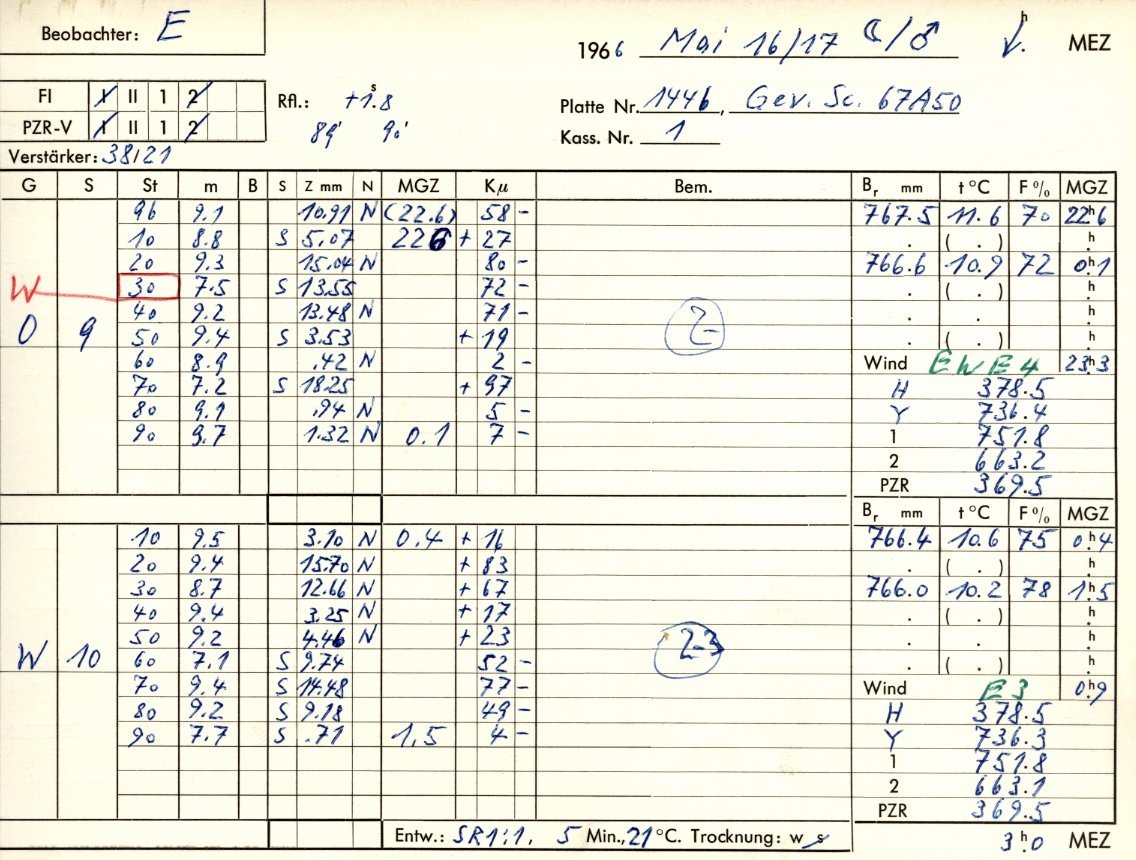 Beobachter: E
1966 Mai 16/17 ☾/♂ h MEZ
FI I II 1 2 Rfl.: +1.ˢ8 Platte Nr. 1446, Gev. Sc. 67A50
PZR-V I II 1 2 89' 90' Kass. Nr. 1
Verstärker: 38/21
G S St m B S Z mm N MGZ Kμ Bem. Bᵣ mm t °C F % MGZ
96 9.1 10.91 N (22.6) 58 - 767.5 11.6 70 22ʰ6
10 8.8 S 5.07 226 + 27 . ( . ) .ʰ
20 9.3 15.04 N 80 - 766.6 10.9 72 0ʰ.1
W 30 7.5 S 13.55 72 - . ( . ) .ʰ
40 9.2 13.48 N 71 - . . .ʰ
O 9 50 9.4 S 3.53 + 19 2- . ( . ) .ʰ
60 8.9 .42 N 2 - Wind E W E 4 23ʰ.3
70 7.2 S 18.25 + 97 H 378.5
80 9.1 .94 N 5 - Y 736.4
90 9.7 1.32 N 0.1 7 - 1 751.8
2 663.2
PZR 369.5
Bᵣ mm t °C F % MGZ
10 9.5 3.10 N 0.4 + 16 766.4 10.6 75 0ʰ.4
20 9.4 15.70 N + 83 . ( . ) .ʰ
30 8.7 12.66 N + 67 766.0 10.2 78 1ʰ.5
40 9.4 3.25 N + 17 . ( . ) .ʰ
50 9.2 4.46 N + 23 . . .ʰ
W 10 60 7.1 S 9.74 52 - 2-3 . ( . ) .ʰ
70 9.4 S 14.48 77 - Wind E 3 0ʰ.9
80 9.2 S 9.18 49 - H 378.5
90 7.7 S .71 1.5 4 - Y 736.3
1 751.8
2 663.1
PZR 369.5
Entw.: SR1:1, 5 Min., 21 °C. Trocknung: w s 3ʰ.0 MEZ